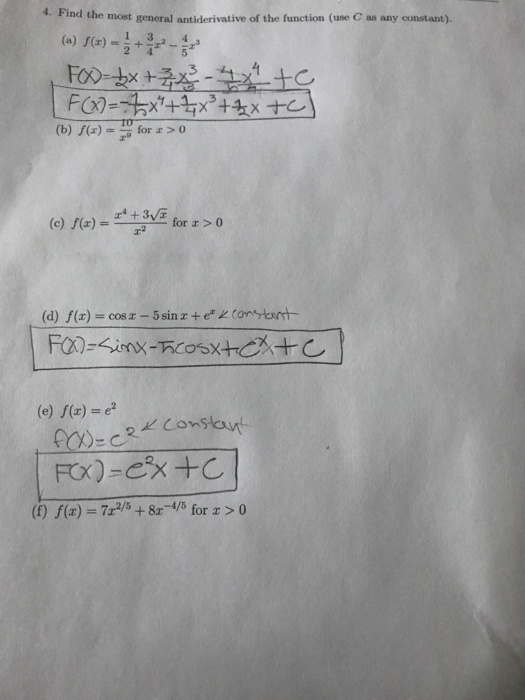 4. Find the most general antiderivative of the function (use C as any constant).
(a) f(x) = 1/2 + 3/4 x² − 4/5 x³
F(x)=1/2x + 3/4 x³/3 − 4/5 x⁴/4 + C
F(x)=−1/5x⁴+1/4x³+1/2x+C
(b) f(x) = 10/x⁹ for x > 0
(c) f(x) = (x⁴ + 3√x)/x² for x > 0
(d) f(x) = cos x − 5 sin x + eˣ ↙ constant
F(x)=sinx−5cosx+eˣ+C
(e) f(x) = e²
f(x)=e² ↙ constant
F(x)=e²x+C
(f) f(x) = 7x^2/5 + 8x^−4/5 for x > 0